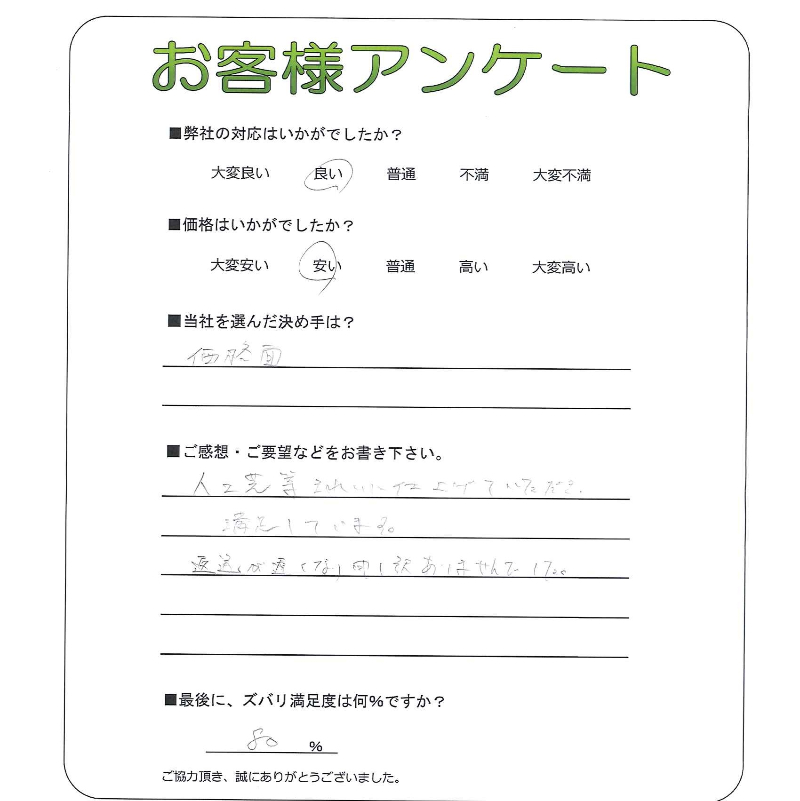 お客様アンケート
■弊社の対応はいかがでしたか？
大変良い 良い 普通 不満 大変不満
■価格はいかがでしたか？
大変安い 安い 普通 高い 大変高い
■当社を選んだ決め手は？
価格面
■ご感想・ご要望などをお書き下さい。
人工芝等きれいに仕上げていただき、
満足しています。
返送が遅くなり申し訳ありませんでした。
■最後に、ズバリ満足度は何%ですか？
80 %
ご協力頂き、誠にありがとうございました。